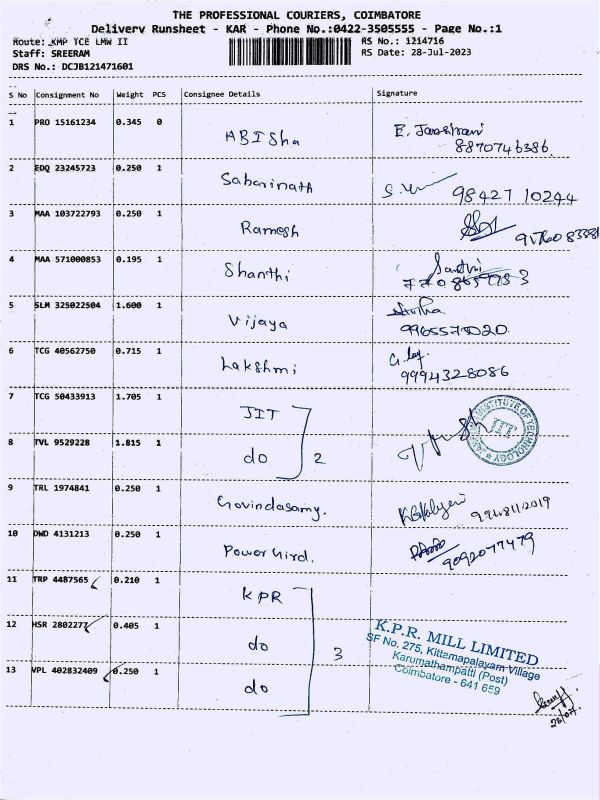 THE PROFESSIONAL COURIERS, COIMBATORE
Delivery Runsheet - KAR - Phone No.:0422-3505555 - Page No.:1
Route: KMP TCE LMW II
RS No.: 1214716
Staff: SREERAM
RS Date: 28-Jul-2023
DRS No.: DCJB121471601
S No Consignment No Weight PCS Consignee Details Signature
1 PRO 15161234 0.345 0 ABISha E. Jaasirani
8870746386
2 EDQ 23245723 0.250 1 Sabarinath 98427 10244
3 MAA 103722793 0.250 1 Ramesh
4 MAA 571000853 0.195 1 Shanthi Santhi
5 SLM 325022504 1.600 1 Vijaya
9965575020
6 TCG 40562750 0.715 1 Lakshmi
9994328086
7 TCG 50433913 1.705 1 JIT
INSTITUTE OF TECHNOLOGY
JIT
8 TVL 9529228 1.815 1 do 2
9 TRL 1974841 0.250 1 Govindasamy.
10 DWD 4131213 0.250 1 Power Gird. 9092077479
11 TRP 4487565 0.210 1 KPR
12 HSR 2802277 0.405 1 do 3
K.P.R. MILL LIMITED
SF No. 275, Kittamapalayam Village
Karumathampatti (Post)
Coimbatore - 641 659
13 VPL 402832409 0.250 1 do